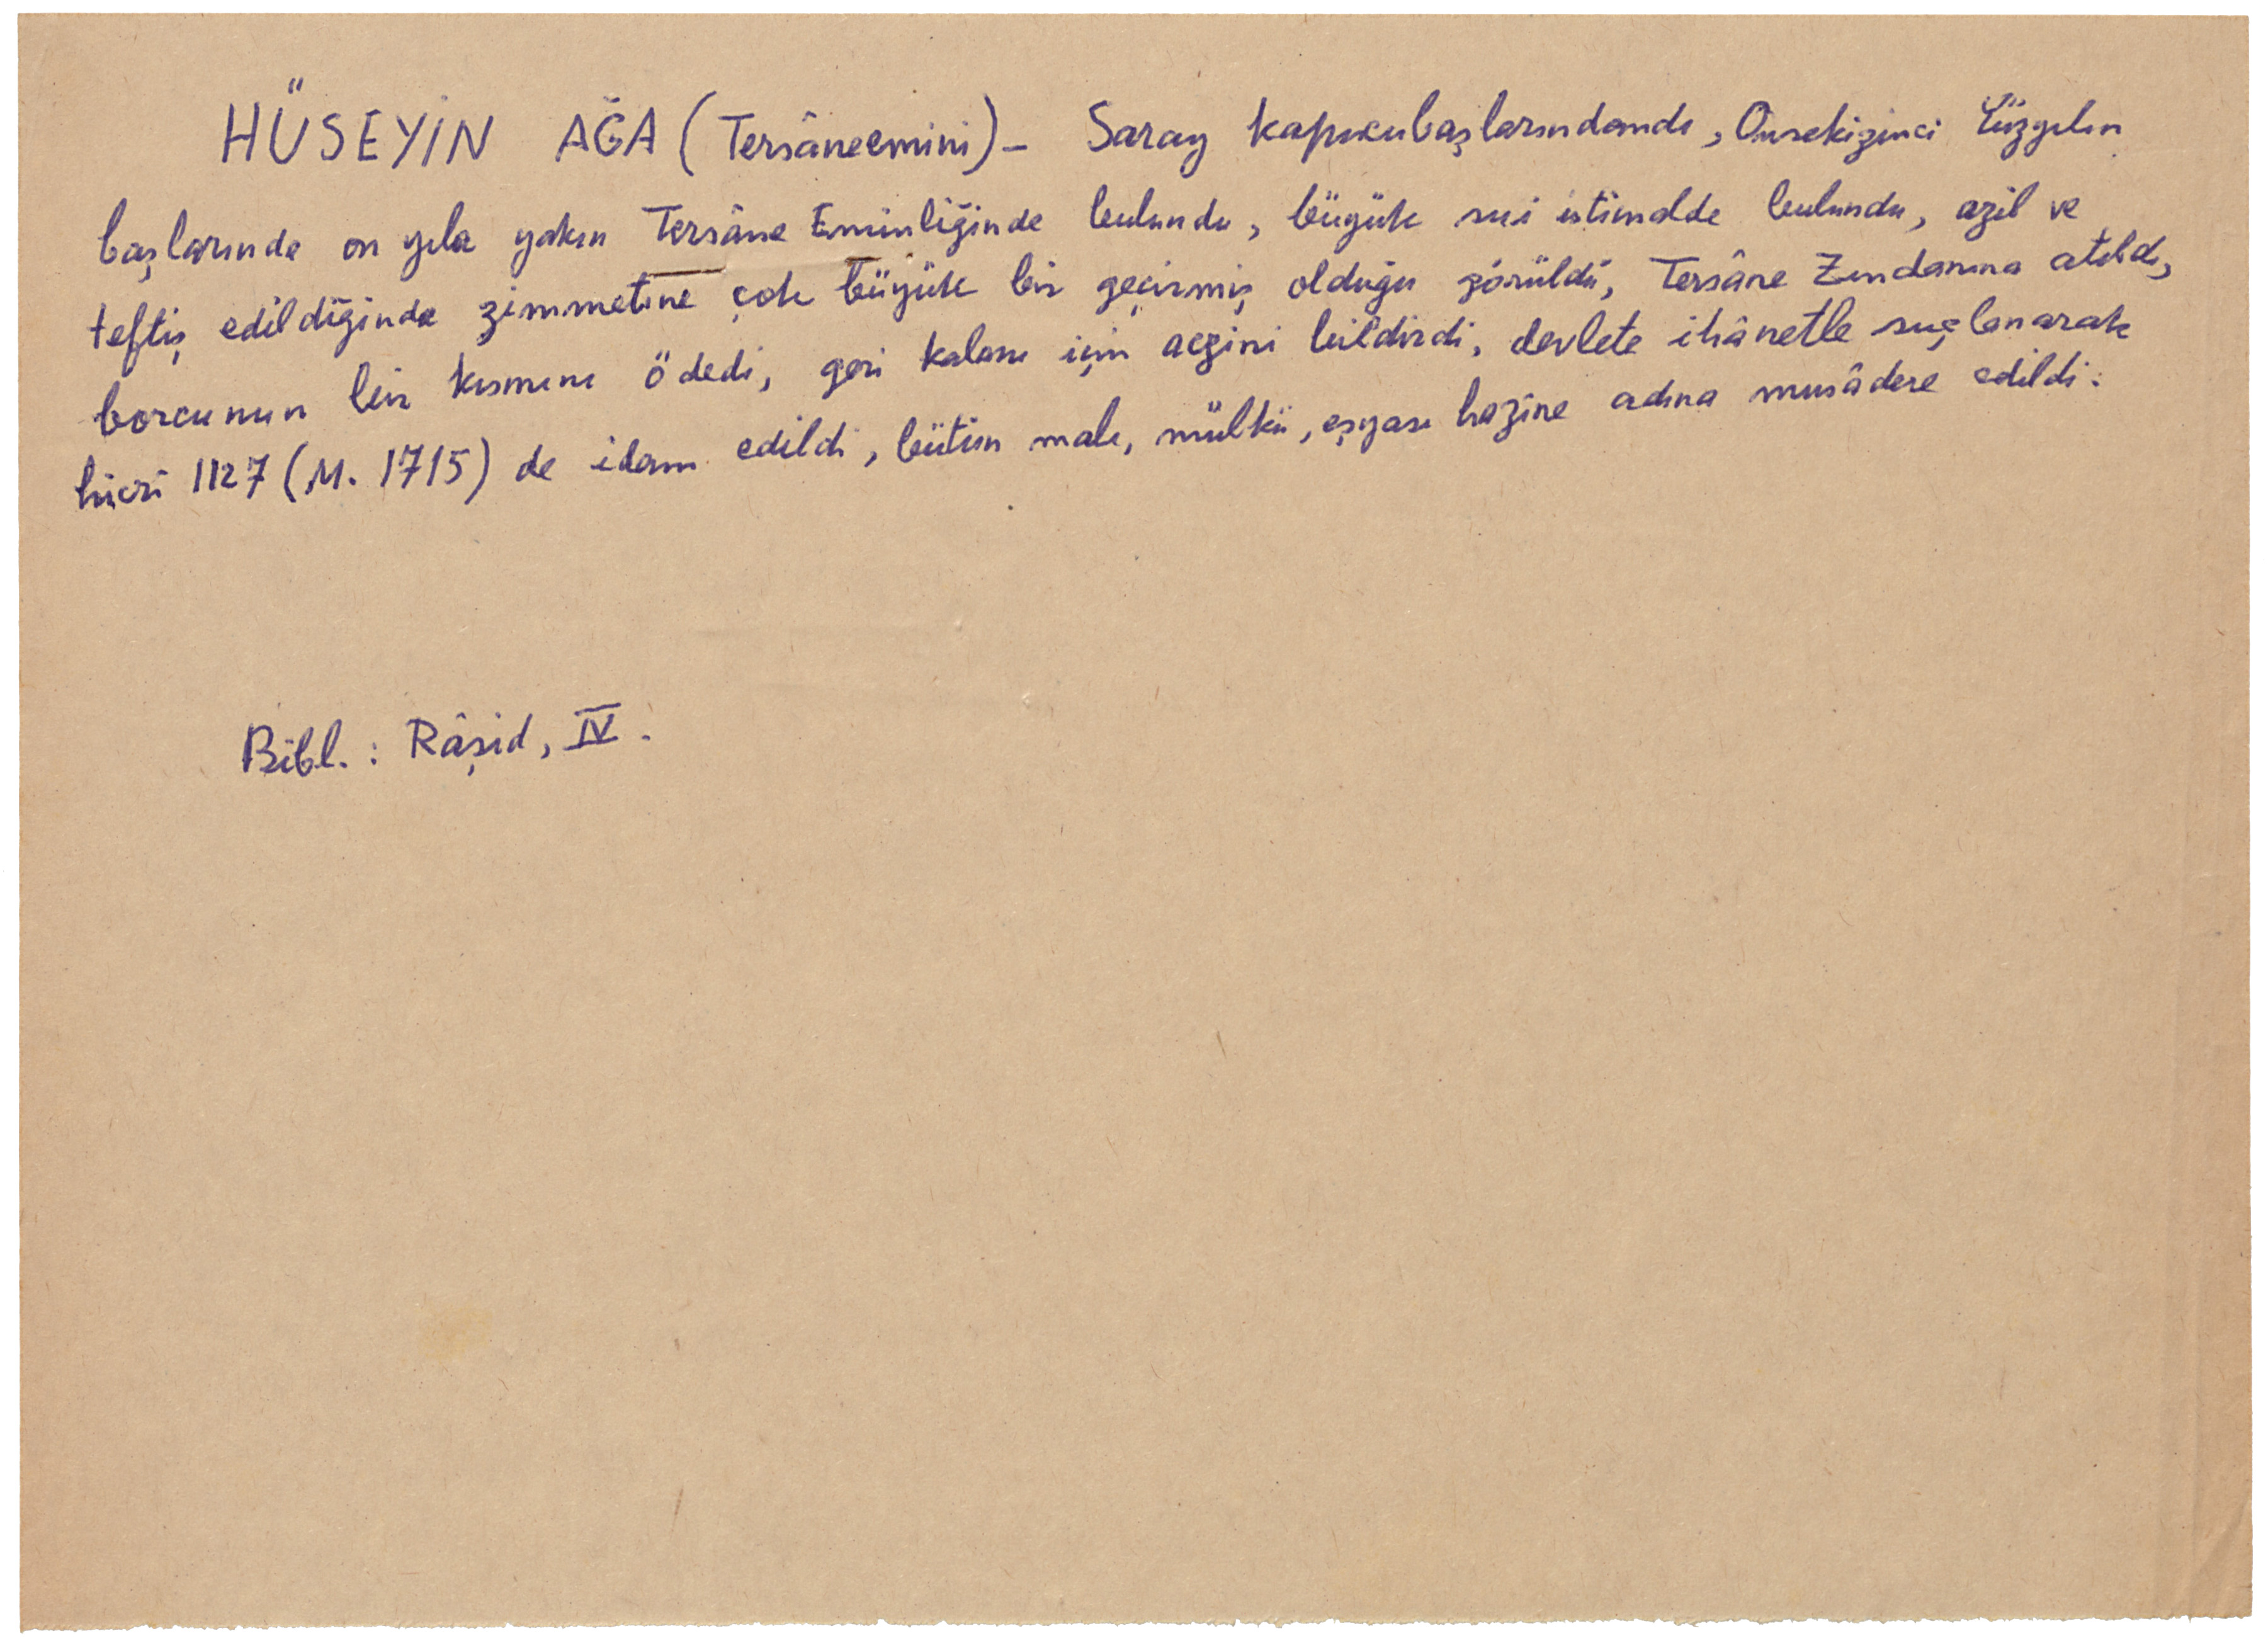 HÜSEYİN AĞA (Tersâneemini) – Saray kapıcıbaşlarındandı, Onsekizinci Yüzyılın
başlarında on yıla yakın Tersâne Eminliğinde bulundu, büyük sui istimalde bulundu, azil ve
teftiş edildiğinde zimmetine çok büyük bir geçirmiş olduğu görüldü, Tersâne Zındanına atıldı,
borcunun bir kısmını ödedi, geri kalanı için aczini bildirdi, devlete ihânetle suçlanarak
hicrî 1127 (M. 1715) de idam edildi, bütün malı, mülkü, eşyası hazîne adına musâdere edildi.
Bibl. : Râşid, IV.